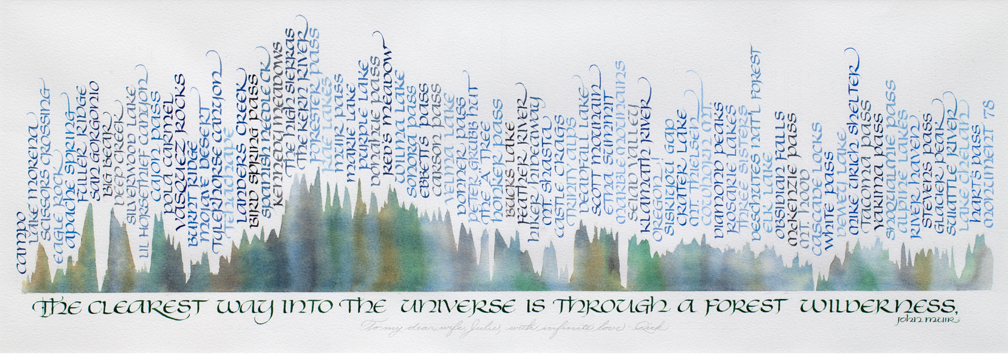 CAMPO
LAKE MORENA
SCISSORS CROSSING
APACHE SPRING
FULLER RIDGE
SAN GORGONIO
BIG BEAR
DEEP CREEK
SILVERWOOD LAKE
LIL HORSETHIEF CANYON
CAJON PASS
MILL CREEK
VASQUEZ ROCKS
BURNT RIDGE
MOJAVE DESERT
TYLERHORSE CANYON
TEHACHAPI
LANDERS CREEK
BIRD SPRING PASS
KENNEDY MEADOWS
THE HIGH SIERRAS
THE KERN RIVER
FORESTER PASS
RAE LAKES
MATHER PASS
MARIE LAKE
PURPLE LAKE
DONAHUE PASS
KEN'S MEADOW
WILMA LAKE
SONORA PASS
EBBETTS PASS
CARSON PASS
DONNER PASS
PETER GRUBB HUT
THE A TREE
BUCKS LAKE
FEATHER RIVER
HIKER HIDEAWAY
MT. SHASTA
CASTLE CRAGS
TRINITY ALPS
DEADFALL LAKE
SCOTT MOUNTAIN
ETNA SUMMIT
MARBLE MOUNTAINS
SEIAD VALLEY
KLAMATH RIVER
SISKIYOU GAP
CRATER LAKE
MT. THIELSEN
COWHORN MT.
DIAMOND PEAKS
ROSARY LAKES
THREE SISTERS
DESCHUTES NATL FOREST
ELK LAKE
OBSIDIAN FALLS
McKENZIE PASS
MT. HOOD
CASCADE LOCKS
WHITE PASS
MIKE URICH SHELTER
TACOMA PASS
YAKIMA PASS
SNOQUALMIE PASS
ALPINE LAKES
RIVER HAVEN
STEVENS PASS
GLACIER PEAK
SUIATTLE RIVER
LAKE CHELAN
HARTS PASS
MONUMENT 78
THE CLEAREST WAY INTO THE UNIVERSE IS THROUGH A FOREST WILDERNESS.
JOHN MUIR
To my dear wife, Julie, with infinite love. Rick